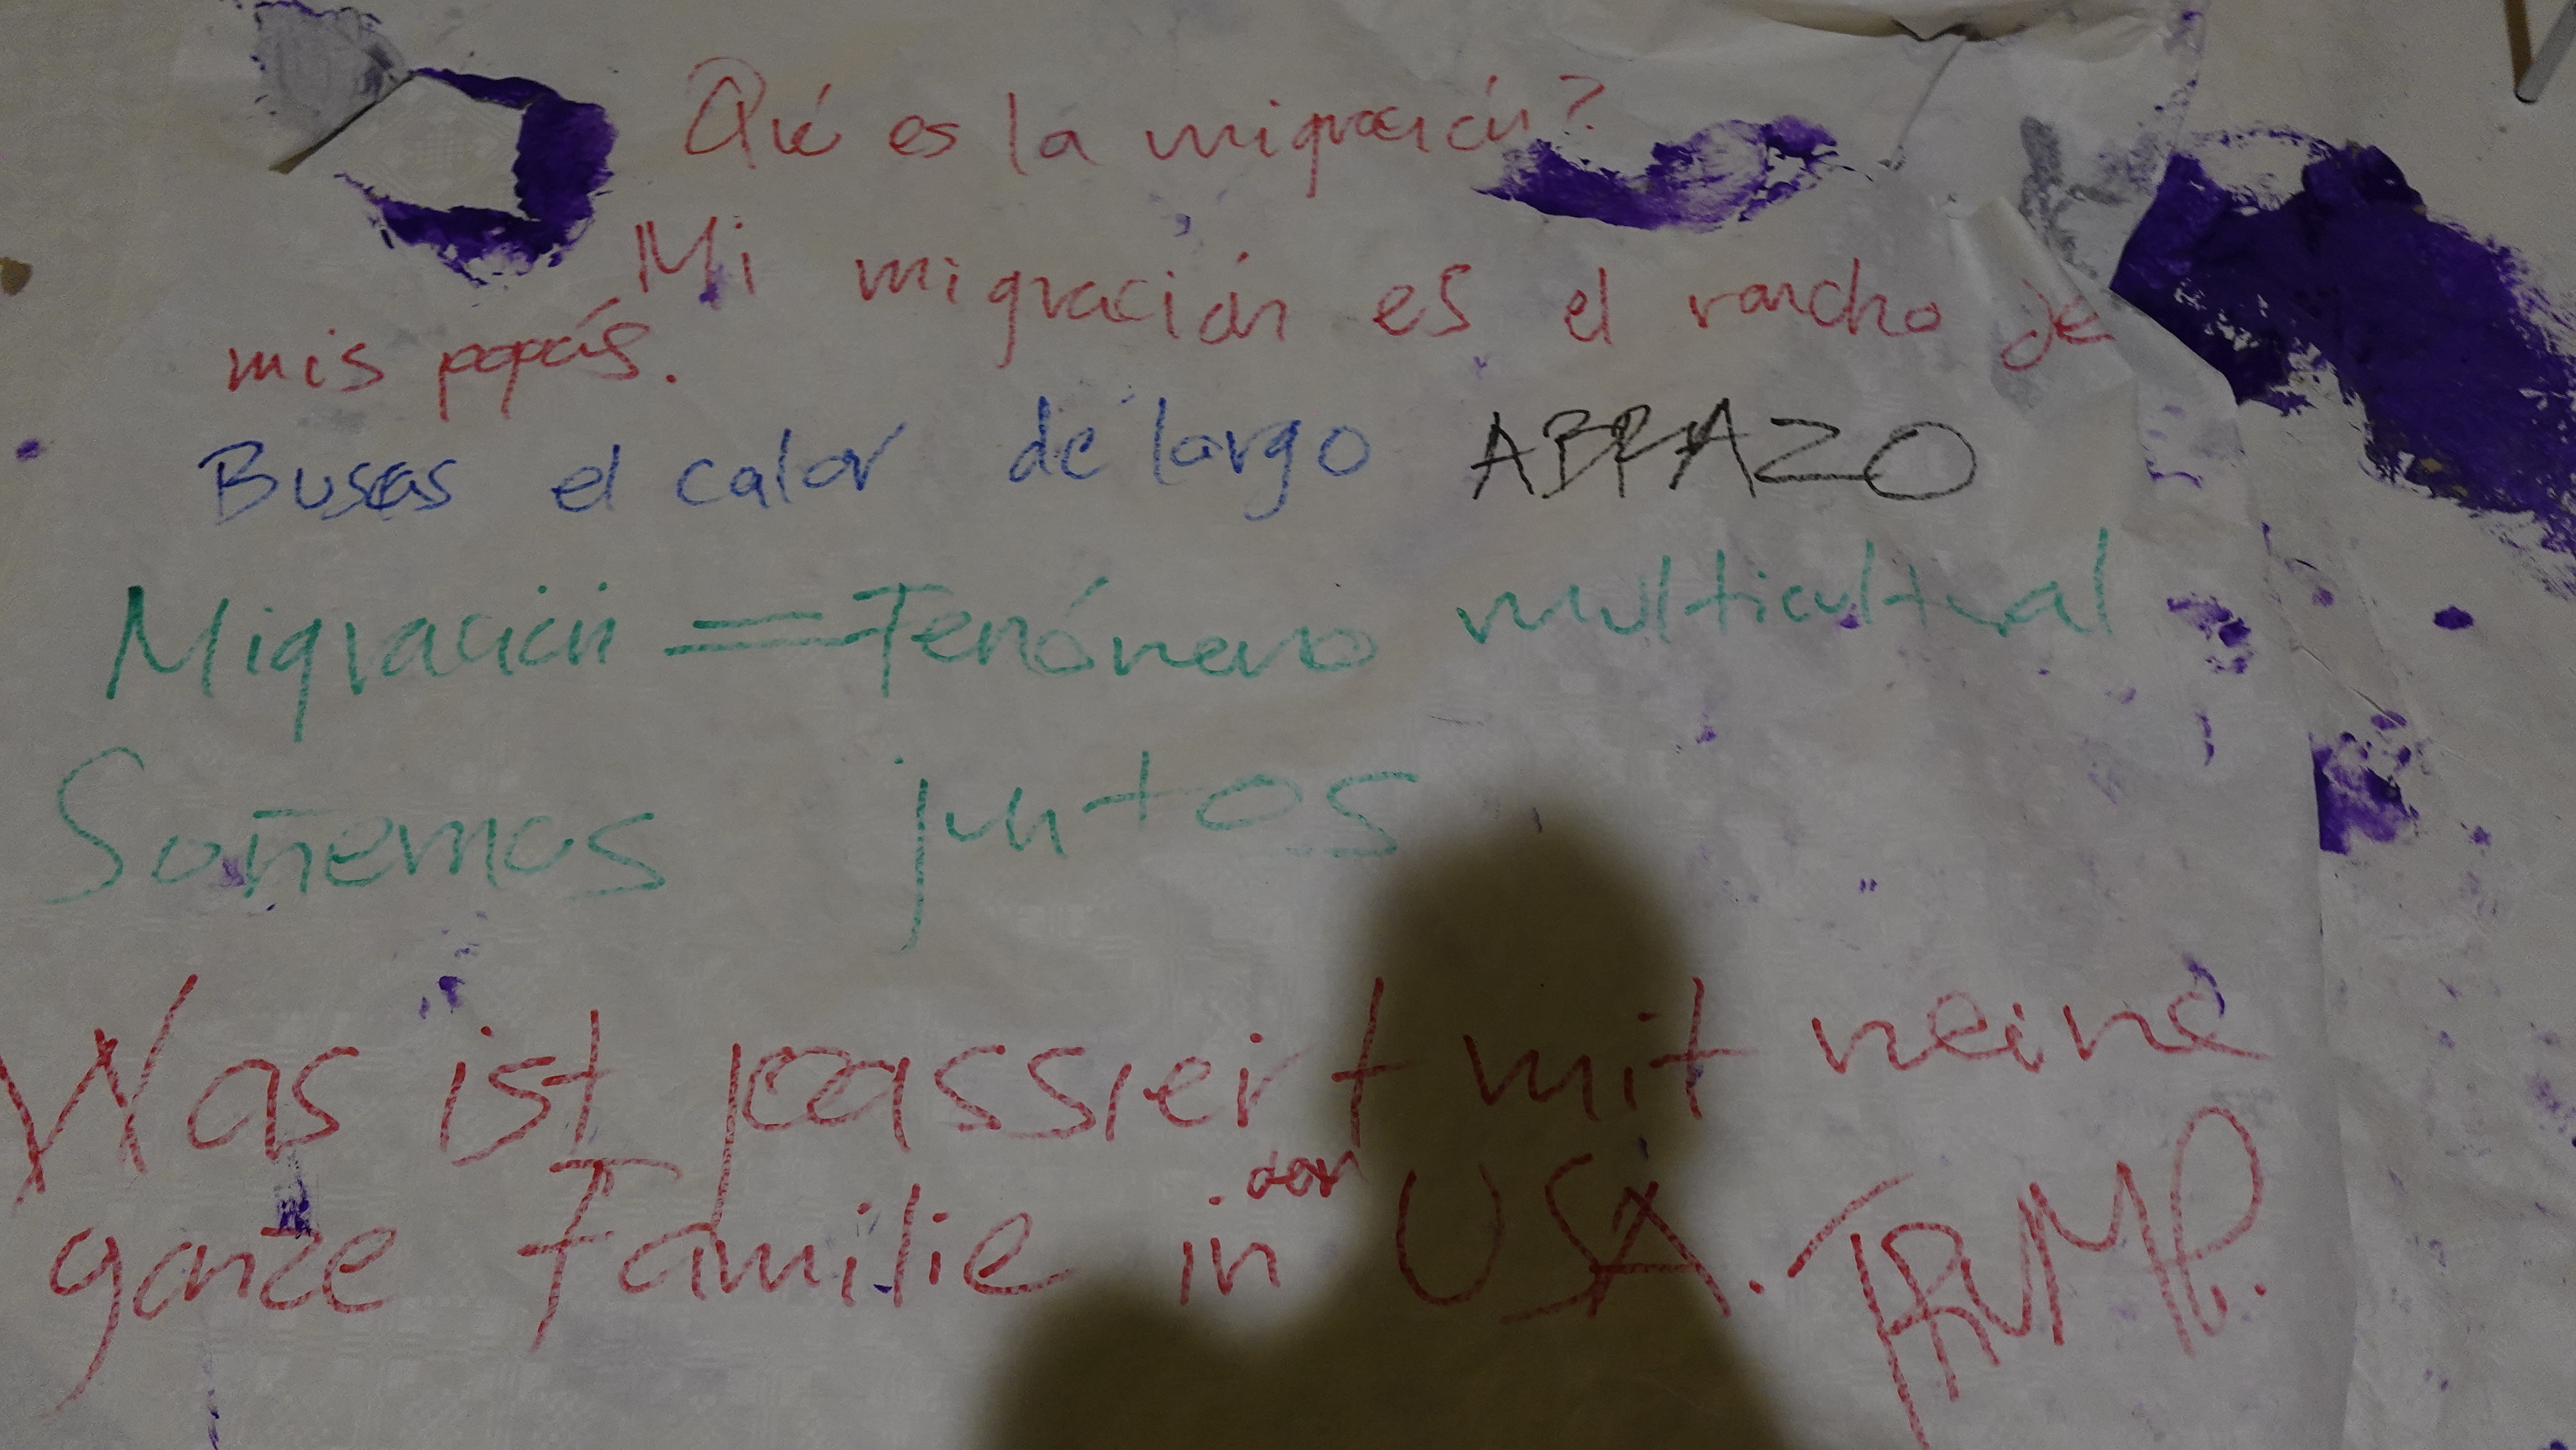 Qué es la migración?
Mi migración es el rancho de
mis papás.
Buscas el calor de largo ABRAZO
Migración = Fenómeno multicultural
Soñemos juntos
Was ist passiert mit meine
ganze Familie in der USA. TRUMP.